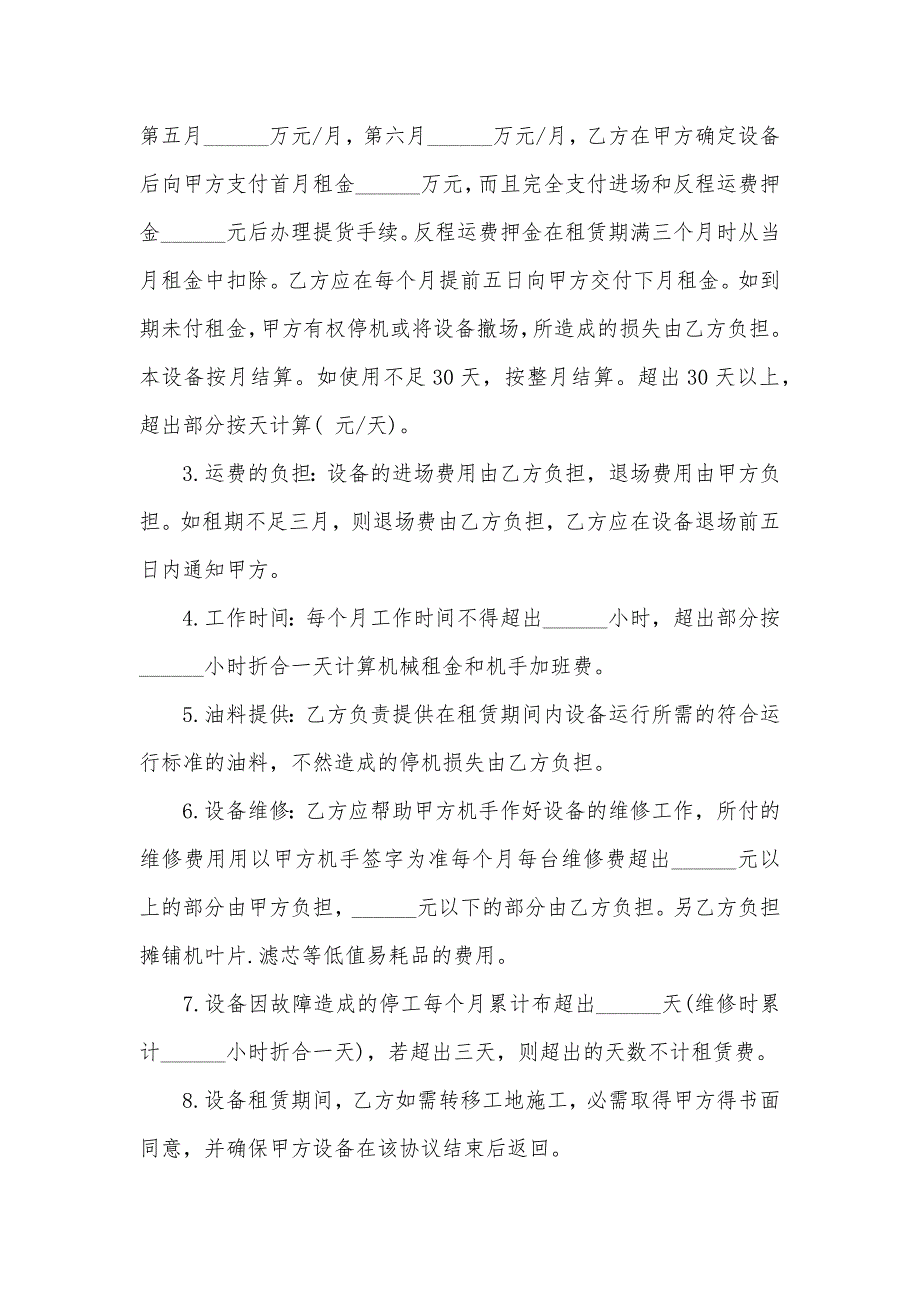 第五月______万元/月，第六月______万元/月，乙方在甲方确定设备
后向甲方支付首月租金______万元，而且完全支付进场和反程运费押
金______元后办理提货手续。反程运费押金在租赁期满三个月时从当
月租金中扣除。乙方应在每个月提前五日向甲方交付下月租金。如到
期未付租金，甲方有权停机或将设备撤场，所造成的损失由乙方负担。
本设备按月结算。如使用不足 30 天，按整月结算。超出 30 天以上，
超出部分按天计算( 元/天)。
3.运费的负担：设备的进场费用由乙方负担，退场费用由甲方负
担。如租期不足三月，则退场费由乙方负担，乙方应在设备退场前五
日内通知甲方。
4.工作时间：每个月工作时间不得超出______小时，超出部分按
______小时折合一天计算机械租金和机手加班费。
5.油料提供：乙方负责提供在租赁期间内设备运行所需的符合运
行标准的油料，不然造成的停机损失由乙方负担。
6.设备维修：乙方应帮助甲方机手作好设备的维修工作，所付的
维修费用用以甲方机手签字为准每个月每台维修费超出______元以
上的部分由甲方负担，______元以下的部分由乙方负担。另乙方负担
摊铺机叶片.滤芯等低值易耗品的费用。
7.设备因故障造成的停工每个月累计布超出______天(维修时累
计______小时折合一天)，若超出三天，则超出的天数不计租赁费。
8.设备租赁期间，乙方如需转移工地施工，必需取得甲方得书面
同意，并确保甲方设备在该协议结束后返回。